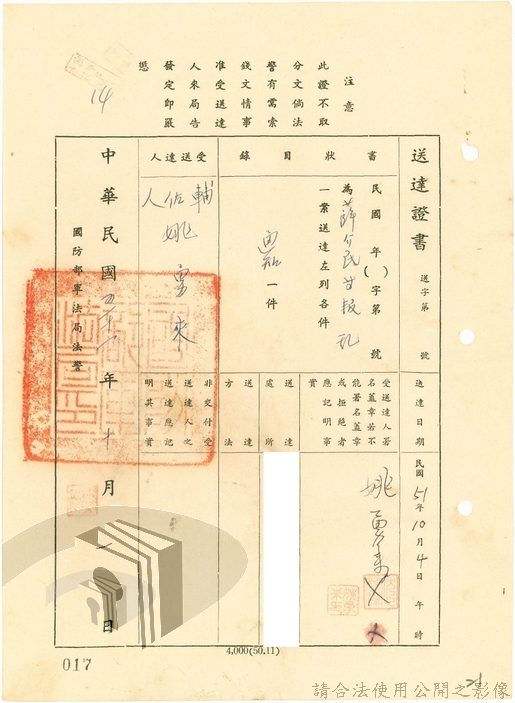 注意
此證不取
分文倘法
警有需索
錢文情事
准受送達
人來局告
發定即嚴
懲
14
送達證書
送字第 號
送達日期
民國51年10月4日 午 時
書狀目錄
民國 年( )字第 號
為薛介民等叛亂
一案送達左列各件
通知 一件
受送達人
輔佐人
姚勇來
受送達人署
名蓋章若不
能署名蓋章
或拒絕者
應記明事
實
姚勇來
送達處所
送達方法
非交付受
送達人之
送達應記
明其事實
中華民國五十一年十月一日
國防部軍法局法警
4,000(50.11)
017
請合法使用公開之影像